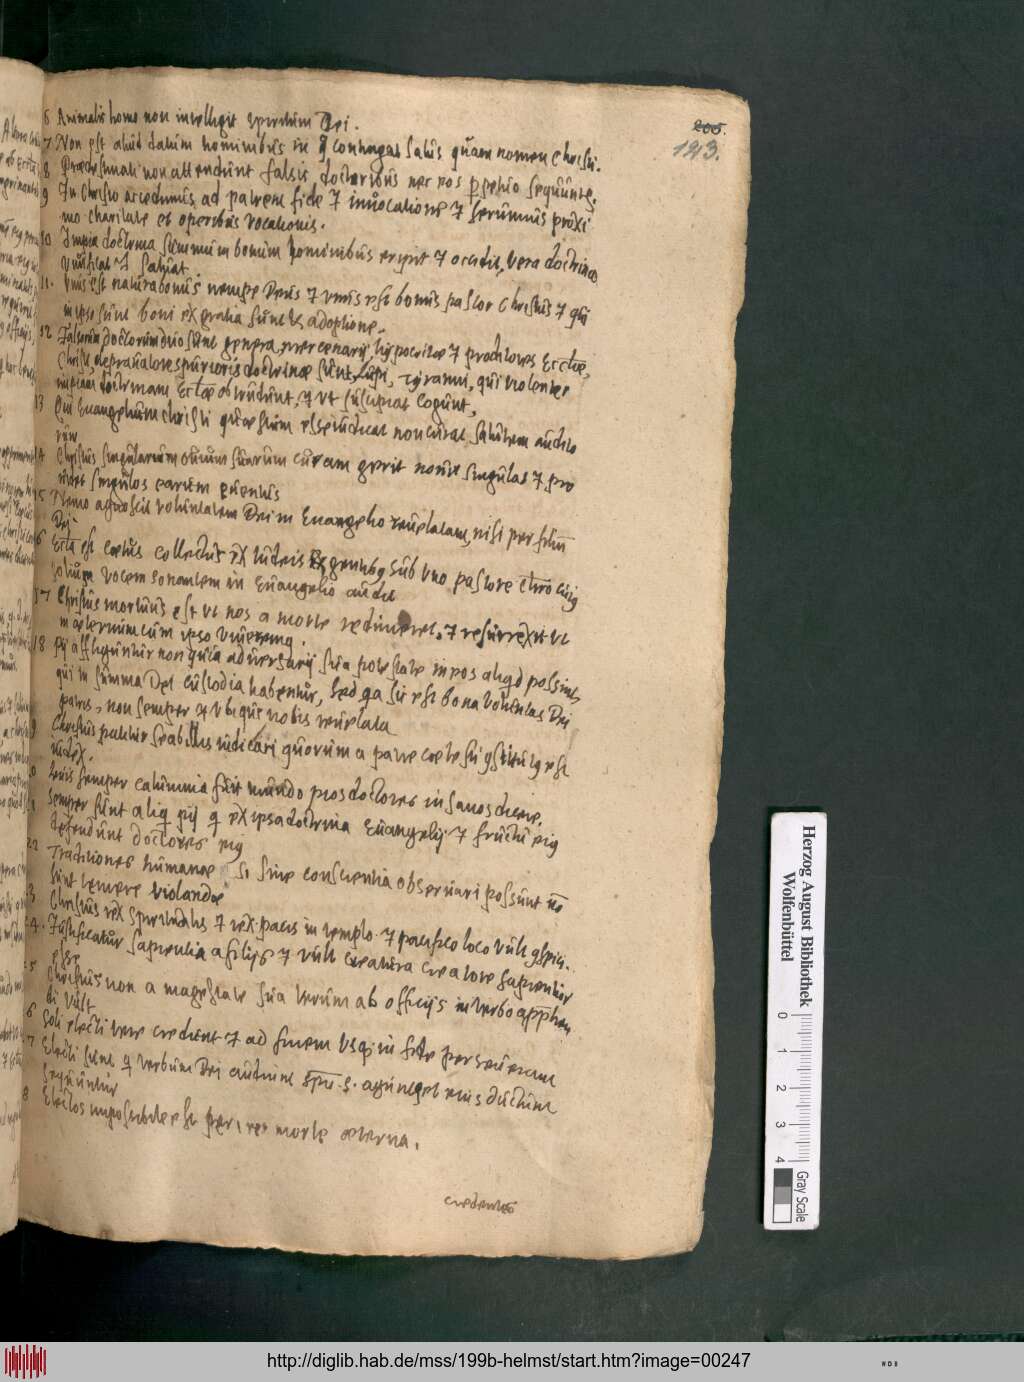 200.
193.
6 Animalis homo non intelligit spiritum Dei.
7 Non est aliud datum hominibus in q̄ contingat salus quam nomen Christi.
8 Praedestinati non attendunt falsis doctoribus nec eos sequuntur.
9 In Christo accedimus ad patrem fide 7 invocatione 7 servimus proxi
mo charitate et operibus vocationis.
10 Impia doctrina summum bonum hominibus eripit 7 occidit, vera doctrina
vivificat et satiat.
11. Unus est natura bonus nempe Deus 7 unus est bonus pastor Christus 7 qui
in ipso sunt boni ex gratia sunt et adoptione.
12 Falsorum doctorum duo sunt genera, mercenarij, hypocritae 7 proditores Eccliae,
Christi, depravatores purioris doctrinae sunt, Lupi, Tyranni, qui violenter
impiam doctrinam Eccliae obtrudunt, 7 ut suscipiat cogunt.
13 Qui Evangelium Christi quaestum esse iudicat non curat salutem audito
rum
14 Christus singularum ovium suarum curam gerit novit singulas 7 pro
videt singulos earum eventus
15 Nemo agnoscit voluntatem Dei in Evangelio revelatam, nisi per filium
Dei
6 Ecclia est coetus collectus ex Iudeis et gentibus sub uno pastore Christo cuius
solius vocem sonantem in Evangelio audit
17 Christus mortuus est ut nos a morte redimeret, 7 resurrexit ut
in aeternum cum ipso viveremus.
18 Pij affliguntur non quia adversarij sua potestate in eos aliqd possint,
qui in summa Dei custodia habentur, sed qa sic est bona voluntas Dei
patris, non semper 7 ubique nobis revelata
9 Christus patitur se ab illis iudicari quorum a patre coelesti constitutus est
iudex.
0 Levis semper calumnia fuit mundo pios doctores insanos dicere.
Semper sunt aliqui pij qui ex ipsa doctrina Evangelij 7 fructu eius
defendunt doctores eius
22 Traditiones humanae si sine conscientia observari possunt non
sunt temere violandae
3 Christus rex spiritualis 7 rex pacis in templo 7 pacifico loco vult conspici.
24. Iustificatur sapientia a filijs 7 vult creatura creatore sapientior
esse
5 Christus non a magestate sua verum ab officijs in verbo apprehen
di vult
6 Soli electi vere credunt 7 ad finem usq in fide perseverant
7 Electi sunt qi verbum Dei audiunt spu s. aguntur et eius ductum
sequuntur
8 Electos impossibile est perire morte aeterna.
credentes
Herzog August Bibliothek
Wolfenbüttel
0 1 2 3 4
Gray Scale
http://diglib.hab.de/mss/199b-helmst/start.htm?image=00247